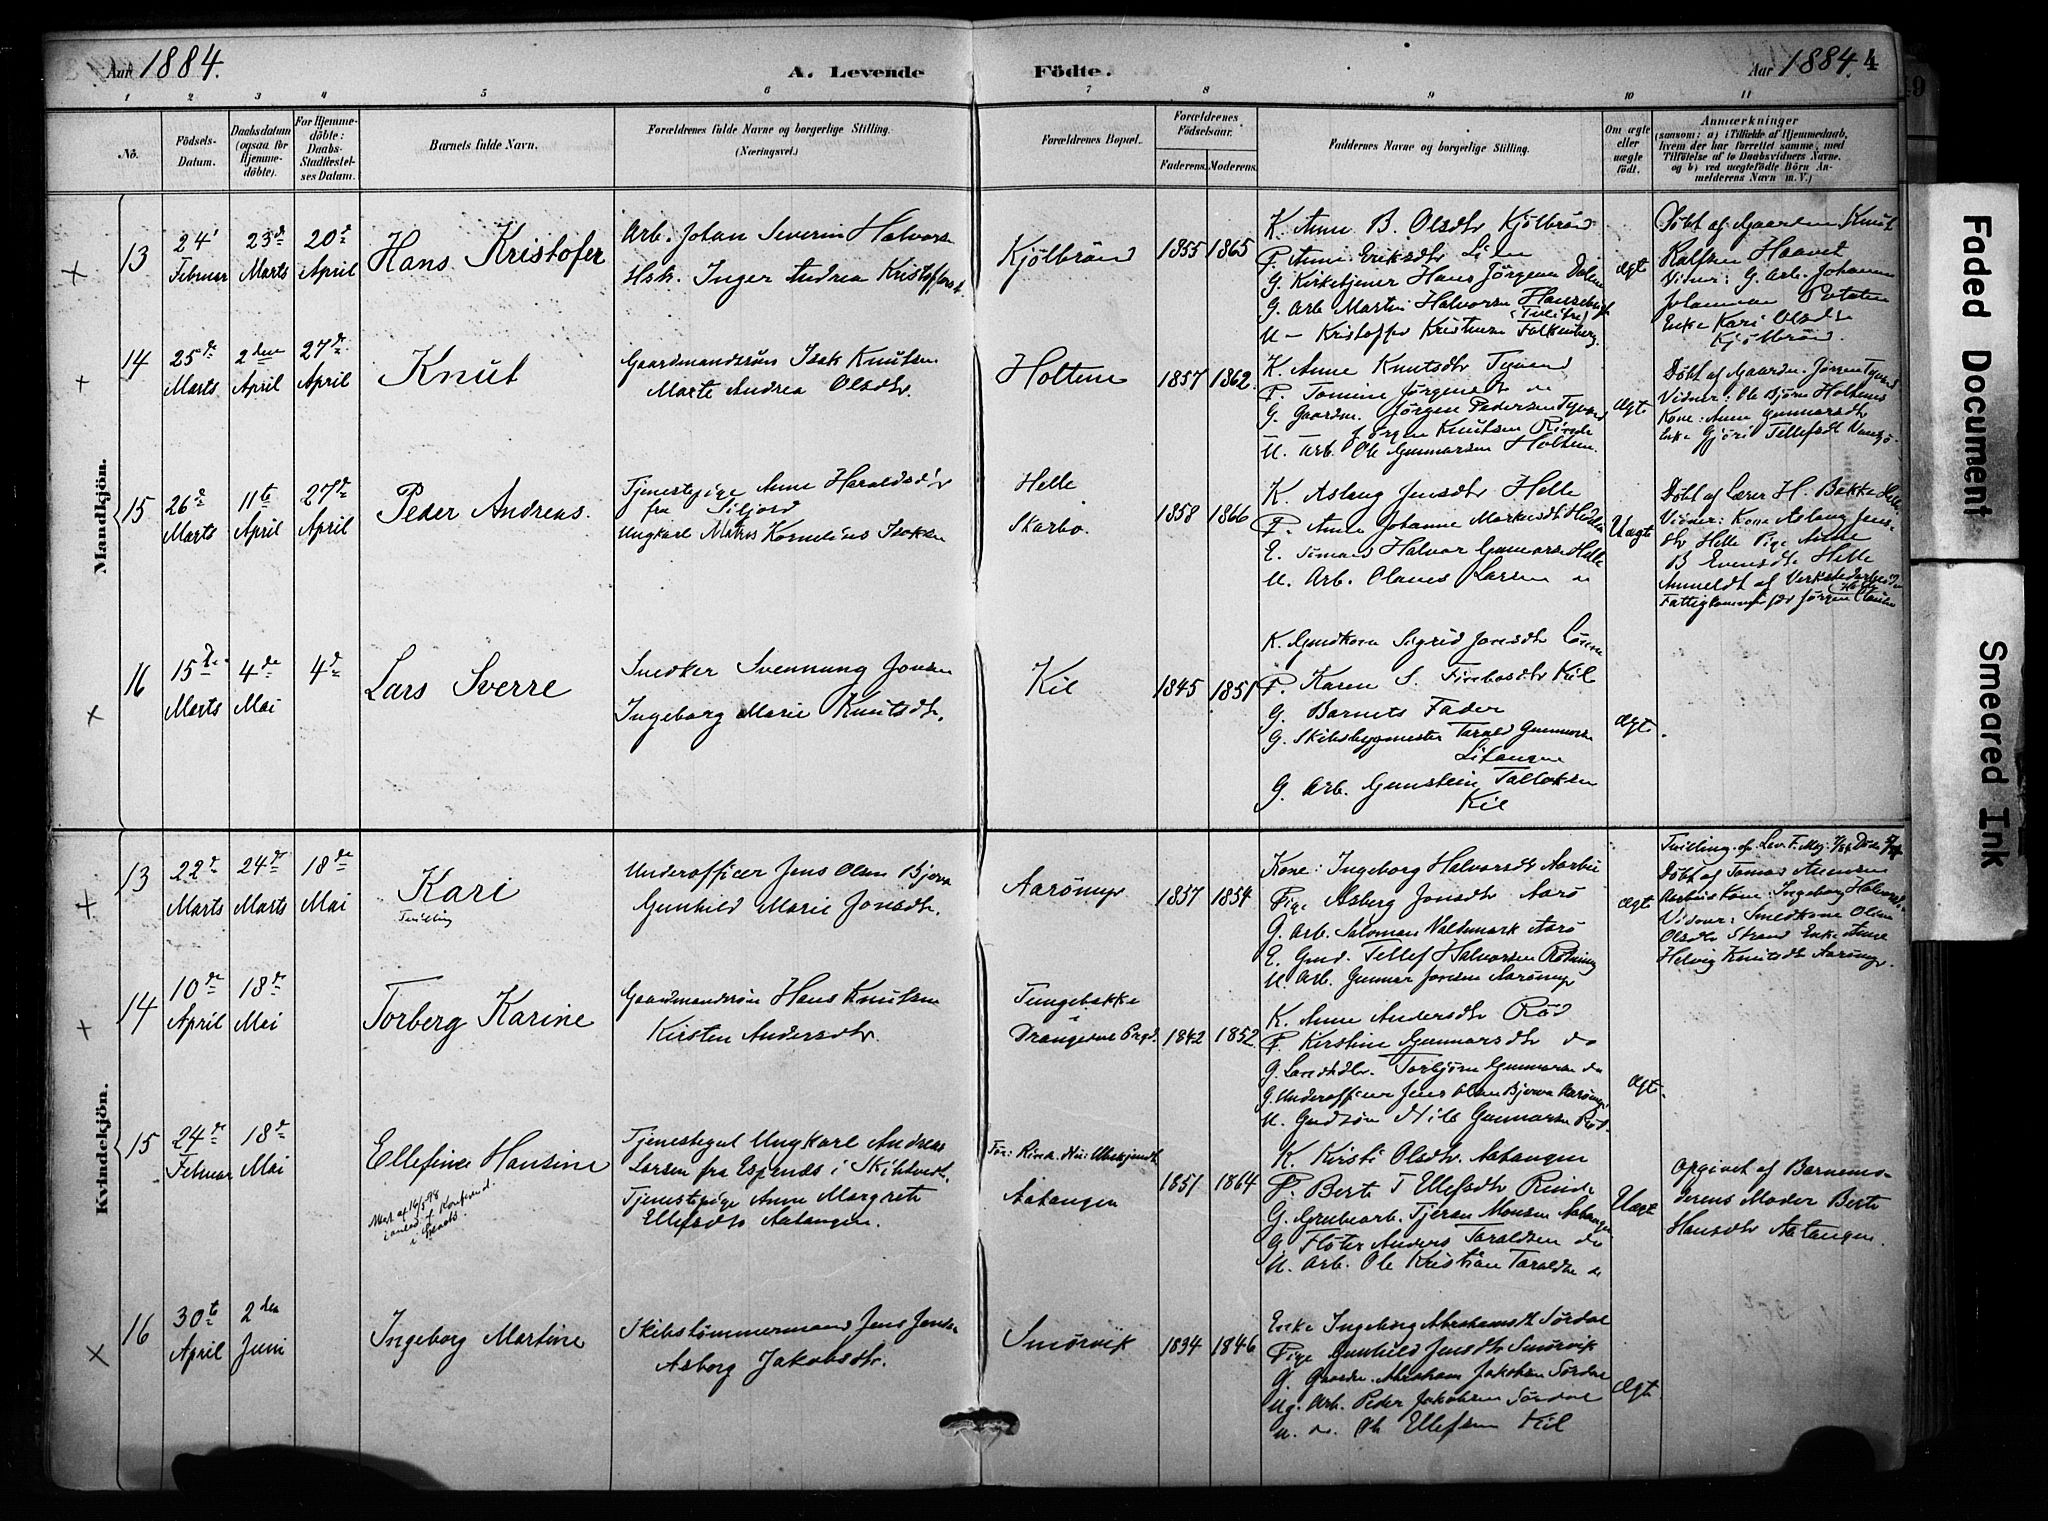 Aar 1884.
A. Levende Födte.
Aar 1884. 4
1 2 3 4 5 6 7 8 9 10 11
No.
Födsels-Datum.
Daabsdatum (ogsaa for Hjemme-döbte).
For Hjemme-döbte: Daabs-Stadfæstel-ses Datum.
Barnets fulde Navn.
Forældrenes fulde Navne og borgerlige Stilling. (Næringsvei.)
Forældrenes Bopæl.
Forældrenes Födselsaar.
Faderens. Moderens.
Faddernes Navne og borgerlige Stilling.
Om ægte eller uægte födt.
Anmærkninger
(saasom: a) i Tilfælde af Hjemmedaab, hvem der har forrettet samme, med Tilföielse af to Daabsvidners Navne, og b) ved uægtefödte Börn An-melderens Navn m. V.)
Mandkjön.
13
24'
Februar
23de
Marts
20de
April
Hans Kristofer
Arb. Johan Severin Halvorsen
Hsk. Inger Andrea Kristofersd.
Kjölbrönd
1855 1865
K. Anne B. Olsdtr Kjölbrönd
P. Anne Eriksdtr Lien
G. Kirketjener Hans Jörgensen Dalen
G. Arb Martin Halvorsen
U – Kristoffer Kristensen Falkenberg.
ægte
Döbt af Gaardm Knut
Rolfsen Haavet
Vidner: G. Arb. Johannes
Enke Kari Olsdtr
Kjölbrönd.
14
25de
Marts
2den
April
27de
April
Knut
Gaardmandssön Isak Knutsen
Marte Andrea Olsdtr.
Holtene
1857 1862
K. Anne Knutsdtr Tyvand
P. Tomine Jörgensdtr do
G. Gaardm. Jörgen Pedersen Tyvand
Jörgen Knutsen Rinde
U. Arb. Ole Gunnarsen Holtene.
ægte
Döbt af Gaardm. Jörgen Tyvand
Vidner: Ole Björn Holtenes
Kone Anne Gunnarsdtr
Enke Gjöri Tellefsdt
15
26de
Marts
11te
April
27de
April
Peder Andreas.
Tjenestepige Anne Haraldsd'r
fra Siljord
Ungkarl Matros Kornelius Isaksen
Helle
Skarbo.
1858 1866
K. Aslaug Jensdtr Helle
P. Anne Johanne Markusdtr
E. Tömmerm Halvor Gunnarsen Helle
U. Arb. Olaves Larsen do
Uægte
Döbt af Lærer H. Bakke Helle
Vidner: Kone Aslaug Jens-
dtr Helle Pige Anne
B Evensdtr Helle
Anmeldt af Verkstedarbeider
Fattigkommisær Jörgen
16
15de
Marts
4de
Mai
4de
Lars Sverre
Snedker Svennung Jonsen
Ingeborg Marie Knutsdtr.
Kil
1845 1851
K. Gmdkone Sigrid Jonsdtr
P. Karen S. Kil
G. Barnets Fader
G. Skibsbygmester Tarald Gunnarsen
Litangen
G. Arb. Gunstein Tallaksen
Kil
ægte.
Kvindekjön.
13
22de
Marts
24de
Marts
18de
Mai
Kari
Tvilling
Underofficer Jens Olsen Bjorvan
Gunhild Marie Jonsdtr.
Aarömyr
1857 1854
Kone: Ingeborg Halvorsdtr Aarbu
Pige Asberg Jonsdtr Aarö
G. Arb. Salomon Valdemark Aarö
E. Gmd. Tellef Halvorsen Rötning
U. Arb. Gunnar Jonsen Aarömyr
ægte
Döbt af Tomas
Aarbus Kone: Ingeborg Halvorsdtr
Vidner: Smedkone Olene
Olsdtr Strand Enke Anne
Helvig Knutsdtr Aarömyr.
14
10de
April
18de
Mai
Torberg Karine
Gaardmandssön Hans Knutsen
Kirsten Andersdtr.
Tungebakke
i
Drangedals Prgd.
1842 1852
K. Anne Andersdtr Röd
P. Kirstine Gunnarsdtr do
G. Landhdlr. Torbjörn Gunnarsen do
G. Underofficer Jens Olsen Bjorvan Aarömyr
U. Gmdsön Nils Gunnarsen Röd.
ægte.
15
24de
Februar
18de
Mai
Ellefine Hansine
i anled. af Konfirmd.
Tjenestegut Ungkarl Andreas
Larsen fra Espenæs i Skåtvedt.
Tjenestepige Anne Margrete
Ellefsdtr Aatangen.
För: Rinde. Nu:
Aatangen
1851 1864
K. Kirsti Olsdtr. Aatangen
P. Berte T Ellefsdtr Rinde
G. Grubearb. Tjeran Monsen Aatangen
G. Flöter Anders Taraldsen do
U. Arb. Ole Kristian Taraldsen do
Uægte
Opgivet af Barnemo-
derens Moder Berte
Hansdtr Aatangen.
16
30te
April
2den
Juni
Ingeborg Martine
Skibstömmermand Jens Jensen
Asborg Jakobsdtr.
Smörvik
1834 1846
Enke Ingeborg Abrahamsdt Sördal
Pige Gunhild Jensdtr Smörvik
G. Gaardm. Abraham Jakobsen Sördal
Ug. Arb. Peder Jakobsen Sördal
U. do. Ole Ellefsen Kil
ægte
Faded Document
Smeared Ink